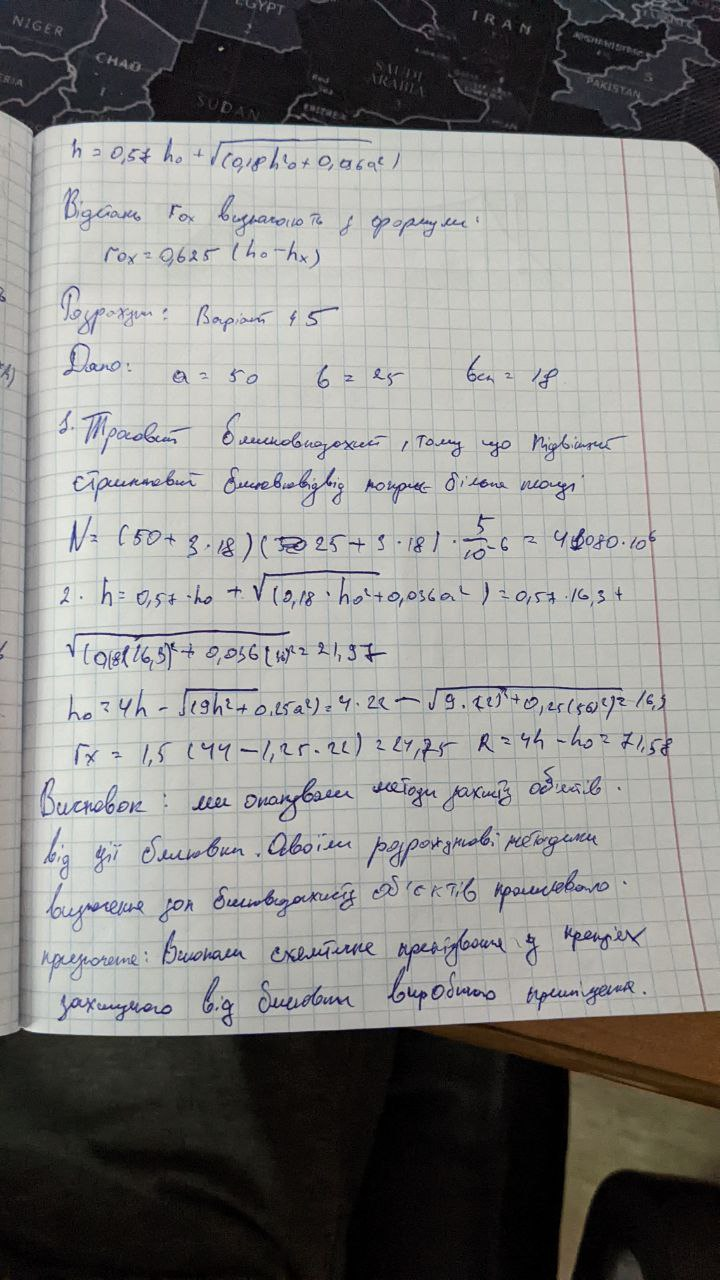 NIGER
CHAD
EGYPT
SUDAN
ERITREA
SAUDI
ARABIA
IRAN
AFGHANISTAN
PAKISTAN
h = 0,57 h₀ + √(0,18h²₀ + 0,036a²)
Відстань r₀ₓ визначають з формули:
r₀ₓ = 0,625 (h₀ - hₓ)
Розрахунки: Варіант 5
Дано: a = 50 b = 25 = 18
1. Тросовий блискавкозахист, тому що підвішений
стрижневий блискавковідвід покриє більше площі
N = (50 + 3·18) (25 + 3·18) · 5/10⁻⁶ = 41080·10⁶
2. h = 0,57·h₀ + √(0,18·h₀² + 0,036a²) = 0,57·16,3 +
√(0,18(16,3)² + 0,036()² = 21,97
h₀ = 4h - √(9h² + 0,25a²) = 4·22 - √9·(22)² + 0,25(50)²) = 16,3
rₓ = 1,5 (44 - 1,25·22) = 24,75 R = 4h - h₀ = 71,58
Висновок: ми опанували методи захисту об'єктів
від дії блискавки. Освоїли розрахункові методики
визначення зон блискавкозахисту об'єктів промислового
призначення: Виконали схематичне у
захищеного від блискавки виробничого приміщення.